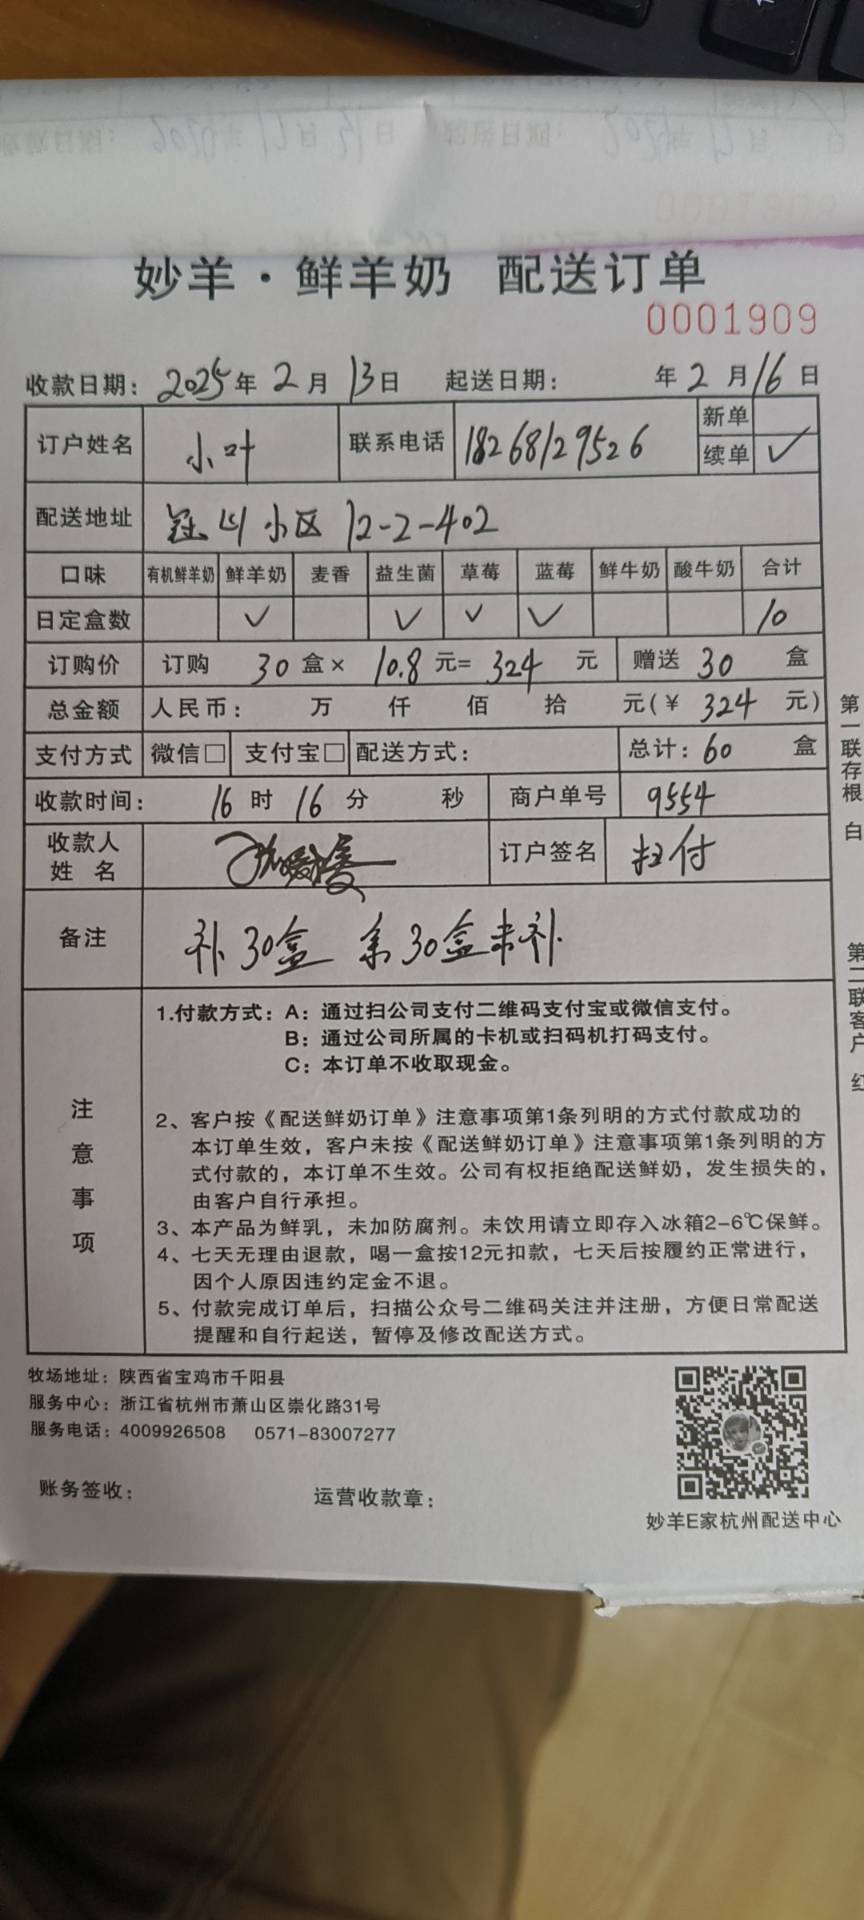 妙羊·鲜羊奶 配送订单
0001909
收款日期：2025年2月13日 起送日期： 年2月16日
订户姓名 小叶 联系电话 18268129526 新单
续单 ✓
配送地址 冠山小区 12-2-402
口味 有机鲜羊奶 鲜羊奶 麦香 益生菌 草莓 蓝莓 鲜牛奶 酸牛奶 合计
日定盒数 ✓ ✓ ✓ ✓ 10
订购价 订购 30 盒× 10.8 元= 324 元 赠送 30 盒
总金额 人民币： 万 仟 佰 拾 元(￥ 324 元)
支付方式 微信□ 支付宝□ 配送方式： 总计：60 盒
收款时间： 16 时 16 分 秒 商户单号 9554
收款人
姓 名
订户签名 扫付
备注 补30盒 余30盒未补
注意事项
1.付款方式：A：通过扫公司支付二维码支付宝或微信支付。
B：通过公司所属的卡机或扫码机打码支付。
C：本订单不收取现金。
2、客户按《配送鲜奶订单》注意事项第1条列明的方式付款成功的
本订单生效，客户未按《配送鲜奶订单》注意事项第1条列明的方
式付款的，本订单不生效。公司有权拒绝配送鲜奶，发生损失的，
由客户自行承担。
3、本产品为鲜乳，未加防腐剂。未饮用请立即存入冰箱2-6℃保鲜。
4、七天无理由退款，喝一盒按12元扣款，七天后按履约正常进行，
因个人原因违约定金不退。
5、付款完成订单后，扫描公众号二维码关注并注册，方便日常配送
提醒和自行起送，暂停及修改配送方式。
第一联存根 白
第二联客户 红
牧场地址：陕西省宝鸡市千阳县
服务中心：浙江省杭州市萧山区崇化路31号
服务电话：4009926508 0571-83007277
账务签收： 运营收款章：
妙羊E家杭州配送中心